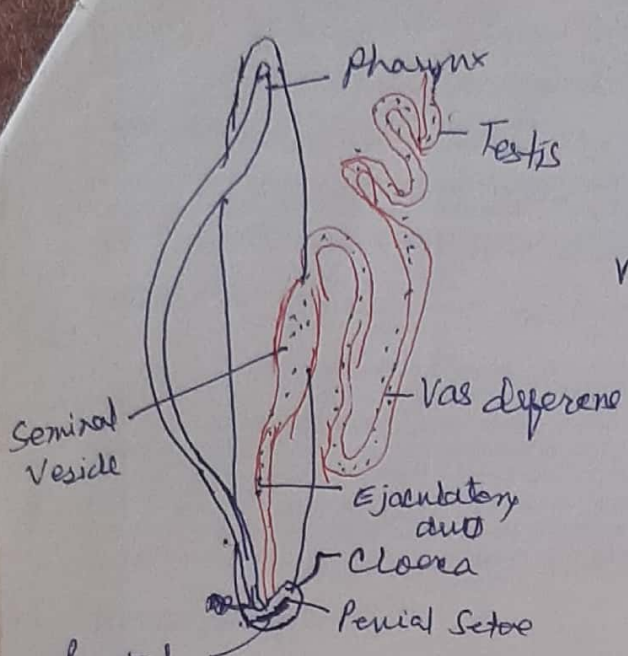 Pharynx
Testis
Vas deferene
Seminal
Vesicle
Ejaculatory
duct
Cloera
Penial Setae